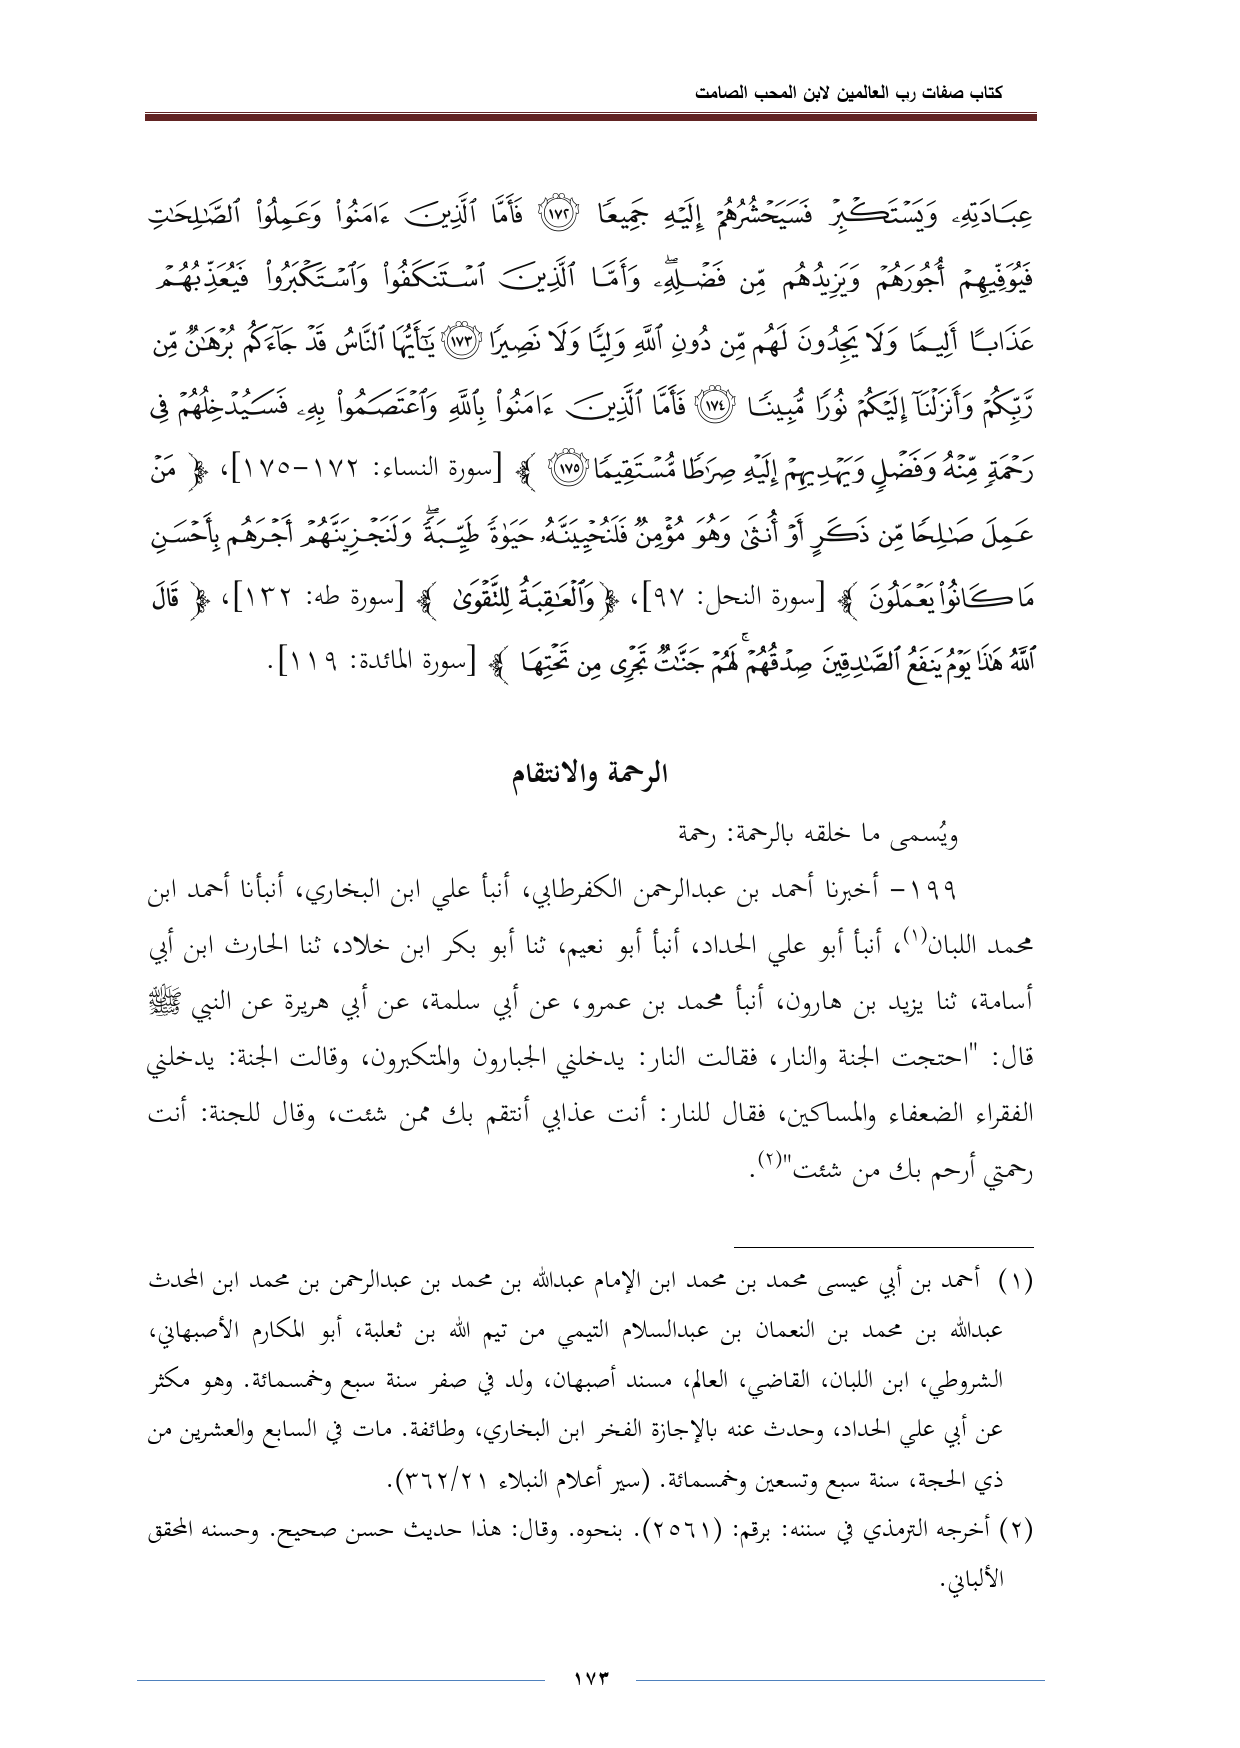 كتاب صفات رب العالمين لابن المحب الصامت
عِبَادَتِهِۦ وَيَسۡتَكۡبِرۡ فَسَيَحۡشُرُهُمۡ إِلَيۡهِ جَمِيعٗا ١٧٢ فَأَمَّا ٱلَّذِينَ ءَامَنُواْ وَعَمِلُواْ ٱلصَّٰلِحَٰتِ
فَيُوَفِّيهِمۡ أُجُورَهُمۡ وَيَزِيدُهُم مِّن فَضۡلِهِۦۖ وَأَمَّا ٱلَّذِينَ ٱسۡتَنكَفُواْ وَٱسۡتَكۡبَرُواْ فَيُعَذِّبُهُمۡ
عَذَابًا أَلِيمٗا وَلَا يَجِدُونَ لَهُم مِّن دُونِ ٱللَّهِ وَلِيّٗا وَلَا نَصِيرٗا ١٧٣ يَٰٓأَيُّهَا ٱلنَّاسُ قَدۡ جَآءَكُم بُرۡهَٰنٞ مِّن
رَّبِّكُمۡ وَأَنزَلۡنَآ إِلَيۡكُمۡ نُورٗا مُّبِينٗا ١٧٤ فَأَمَّا ٱلَّذِينَ ءَامَنُواْ بِٱللَّهِ وَٱعۡتَصَمُواْ بِهِۦ فَسَيُدۡخِلُهُمۡ فِي
رَحۡمَةٖ مِّنۡهُ وَفَضۡلٖ وَيَهۡدِيهِمۡ إِلَيۡهِ صِرَٰطٗا مُّسۡتَقِيمٗا ١٧٥ ﴾ [سورة النساء: ١٧٢-١٧٥]، ﴿ مَنۡ
عَمِلَ صَٰلِحٗا مِّن ذَكَرٍ أَوۡ أُنثَىٰ وَهُوَ مُؤۡمِنٞ فَلَنُحۡيِيَنَّهُۥ حَيَوٰةٗ طَيِّبَةٗۖ وَلَنَجۡزِيَنَّهُمۡ أَجۡرَهُم بِأَحۡسَنِ
مَا كَانُواْ يَعۡمَلُونَ ﴾ [سورة النحل: ٩٧]، ﴿ وَٱلۡعَٰقِبَةُ لِلتَّقۡوَىٰ ﴾ [سورة طه: ١٣٢]، ﴿ قَالَ
ٱللَّهُ هَٰذَا يَوۡمُ يَنفَعُ ٱلصَّٰدِقِينَ صِدۡقُهُمۡۚ لَهُمۡ جَنَّٰتٞ تَجۡرِي مِن تَحۡتِهَا ﴾ [سورة المائدة: ١١٩].
الرحمة والانتقام
ويُسمى ما خلقه بالرحمة: رحمة
١٩٩- أخبرنا أحمد بن عبدالرحمن الكفرطابي، أنبأ علي ابن البخاري، أنبأنا أحمد ابن
محمد اللبان(١)، أنبأ أبو علي الحداد، أنبأ أبو نعيم، ثنا أبو بكر ابن خلاد، ثنا الحارث ابن أبي
أسامة، ثنا يزيد بن هارون، أنبأ محمد بن عمرو، عن أبي سلمة، عن أبي هريرة عن النبي ﷺ
قال: "احتجت الجنة والنار، فقالت النار: يدخلني الجبارون والمتكبرون، وقالت الجنة: يدخلني
الفقراء الضعفاء والمساكين، فقال للنار: أنت عذابي أنتقم بك ممن شئت، وقال للجنة: أنت
رحمتي أرحم بك من شئت"(٢).
(١) أحمد بن أبي عيسى محمد بن محمد ابن الإمام عبدالله بن محمد بن عبدالرحمن بن محمد ابن المحدث
عبدالله بن محمد بن النعمان بن عبدالسلام التيمي من تيم الله بن ثعلبة، أبو المكارم الأصبهاني،
الشروطي، ابن اللبان، القاضي، العالم، مسند أصبهان، ولد في صفر سنة سبع وخمسمائة. وهو مكثر
عن أبي علي الحداد، وحدث عنه بالإجازة الفخر ابن البخاري، وطائفة. مات في السابع والعشرين من
ذي الحجة، سنة سبع وتسعين وخمسمائة. (سير أعلام النبلاء ٣٦٢/٢١).
(٢) أخرجه الترمذي في سننه: برقم: (٢٥٦١). بنحوه. وقال: هذا حديث حسن صحيح. وحسنه المحقق
الألباني.
١٧٣